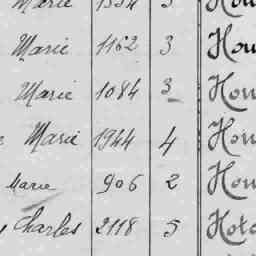 Marie 1334 3
Marie 1162 3 Hou
Marie 1084 3 Hou
Marie 1944 4 Hou
Marie 906 2 Hou
Charles 2118 5 Hota